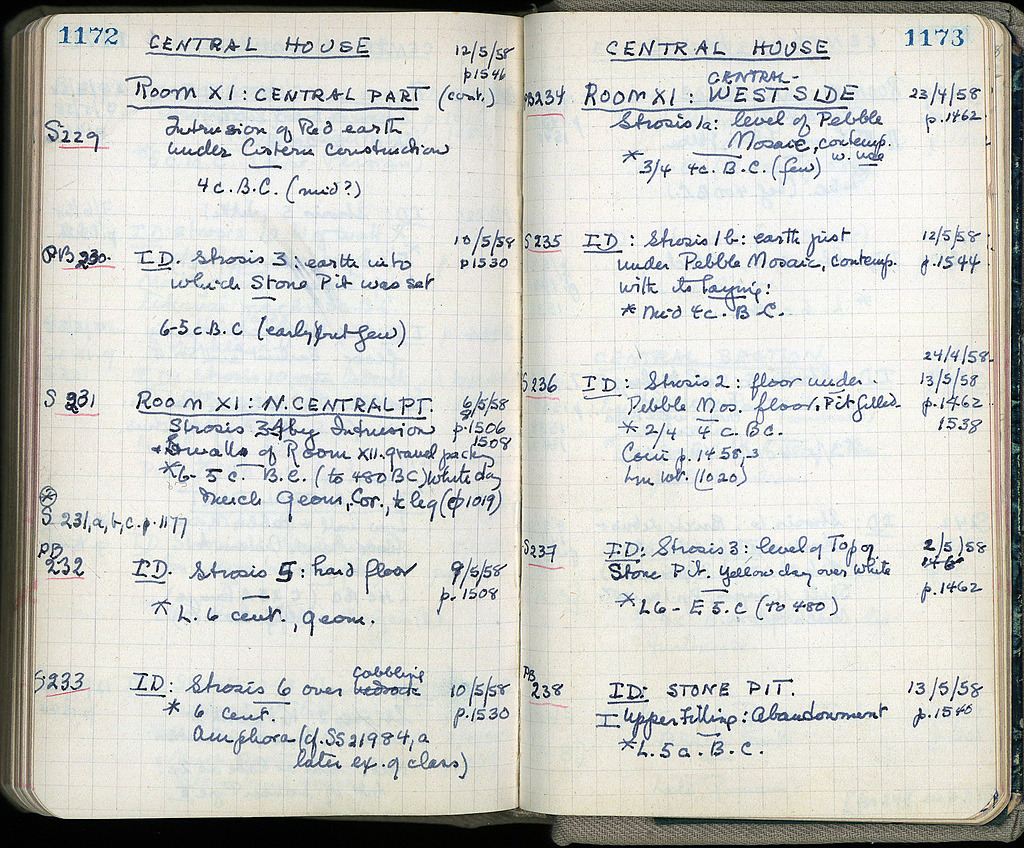 1172
CENTRAL HOUSE
12/5/58
p1546
ROOM XI: CENTRAL PART (cont.)
S229
Intrusion of Red earth
under Cistern construction
4 c. B.C. (mid?)
10/5/58
PB 230. ID. Strosis 3: earth into p1530
which Stone Pit was set
6-5 c. B.C (early but few)
S 231 ROOM XI: N. CENTRAL PT. 6/5/58
Strosis by Intrusion p.1506
1508
walls of Room XII. gravel packing
*6-5 c. B.C. (to 480 BC) white clay
Much Geom, Cor.,
S 231, a, b, c. p. 1177
PB
232 ID. Strosis 5: hard floor 9/5/58
p.1508
* L. 6 cent., geom.
cobbling
S233 ID: Strosis 6 over bedrock 10/5/58
* 6 cent. p.1530
Amphora (cf. SS 21984, a
later ex. of class)
1173
CENTRAL HOUSE
CENTRAL-
PB234 ROOM XI: WEST SIDE 23/4/58
Strosis 1a: level of Pebble p.1462
Mosaic, contemp.
w. use
* 3/4 4c. B.C. (few)
S235 ID: Strosis 1b: earth just 12/5/58
under Pebble Mosaic, contemp. p.1544
with its laying:
* mid 4c. B.C.
24/4/58
S236 ID: Strosis 2: floor under 13/5/58
Pebble Mos. floor, Pit filled p.1462
* 2/4 4 c. BC. 1538
Coin p.1458,3
(1020)
S237 ID: Strosis 3: level of Top of 2/5/58
Stone Pit. Yellow clay over white
p.1462
* L6 - E 5. C (to 480)
PB
238 ID: STONE PIT. 13/5/58
I Upper Filling: Abandonment p.1540
* L. 5 c. B.C.